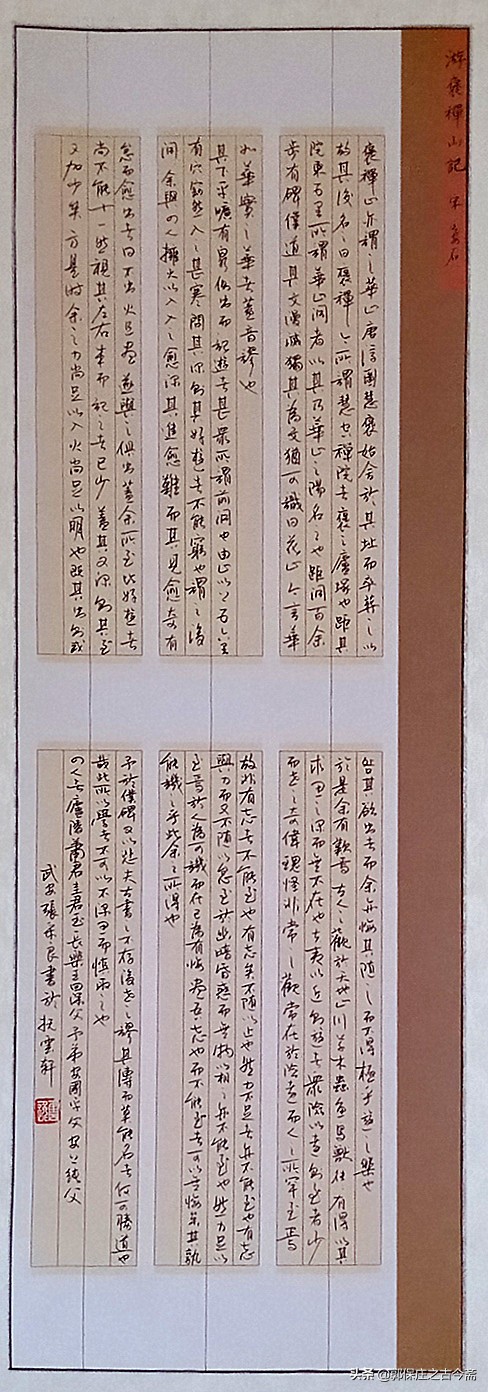 游褒禪山記 宋 安石
褒禪山亦謂之華山唐浮圖慧褒始舍於其址而卒葬之以
故其後名之曰褒禪今所謂慧空禪院者褒之廬塚也距其
院東五里所謂華山洞者以其乃華山之陽名之也距洞百余
步有碑僕道其文漫滅獨其為文猶可識曰花山今言華
如華實之華者蓋音謬也
其下平曠有泉側出而記遊者甚眾所謂前洞也由山以上五六里
有穴窈然入之甚寒問其深則其好遊者不能窮也謂之後
洞余與四人擁火以入入之愈深其進愈難而其見愈奇有
怠而欲出者曰不出火且盡遂與之俱出蓋余所至比好遊者
尚不能十一然視其左右來而記之者已少蓋其又深則其至
又加少矣方是時余之力尚足以入火尚足以明也既其出則或
咎其欲出者而余亦悔其隨之而不得極乎遊之樂也
於是余有歎焉古人之觀於天地山川草木蟲魚鳥獸往往有得以其
求思之深而無不在也夫夷以近則遊者眾險以遠則至者少
而世之奇偉瑰怪非常之觀常在於險遠而人之所罕至焉
故非有志者不能至也有志矣不隨以止也然力不足者亦不能至也有志
與力而又不隨以怠至於幽暗昏惑而無物以相之亦不能至也然力足以
至焉於人為可譏而在己為有悔盡吾志也而不能至者可以無悔矣其孰
能譏之乎此余之所得也
予於僕碑又以悲夫古書之不存後世之謬其傳而莫能名者何可勝道也
哉此所以學者不可以不深思而慎取之也
四人者廬陵蕭君圭君玉長樂王回深父予弟安國平父安上純父
武安張禾良書於抚雲軒
头条 @郭保庄之古今斋